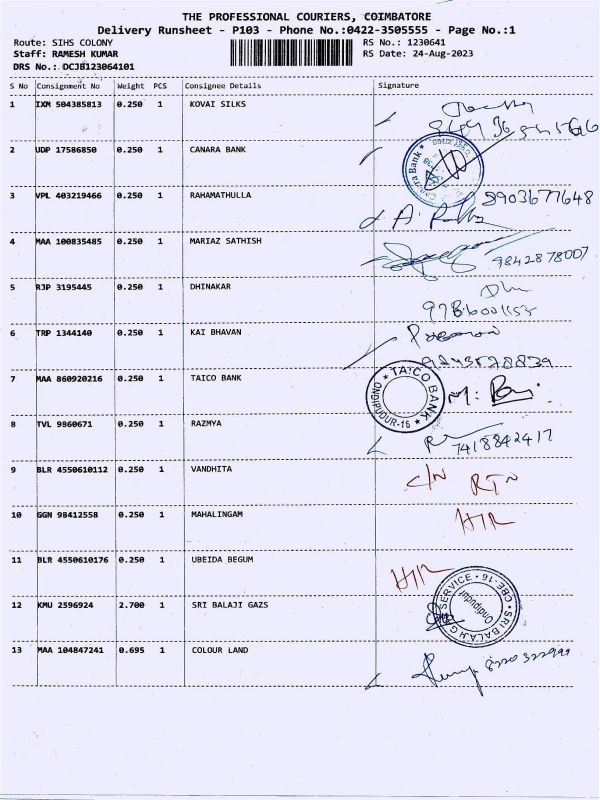 THE PROFESSIONAL COURIERS, COIMBATORE
Delivery Runsheet - P103 - Phone No.:0422-3505555 - Page No.:1
Route: SIHS COLONY RS No.: 1230641
Staff: RAMESH KUMAR RS Date: 24-Aug-2023
DRS No.: DCJB123064101
S No Consignment No Weight PCS Consignee Details Signature
1 IXM 504385813 0.250 1 KOVAI SILKS
2 UDP 17586850 0.250 1 CANARA BANK
Canara Bank
3 VPL 403219466 0.250 1 RAHAMATHULLA
9903677648
4 MAA 100835485 0.250 1 MARIAZ SATHISH
9842878007
5 RJP 3195445 0.250 1 DHINAKAR
9786001155
6 TRP 1344140 0.250 1 KAI BHAVAN
7 MAA 860920216 0.250 1 TAICO BANK
TAICO BANK
ONDIPUDUR-16
8 TVL 9860671 0.250 1 RAZMYA
7418842417
9 BLR 4550610112 0.250 1 VANDHITA
C/N RTN
10 GGN 98412558 0.250 1 MAHALINGAM
11 BLR 4550610176 0.250 1 UBEIDA BEGUM
12 KMU 2596924 2.700 1 SRI BALAJI GAZS
SRI BALAJI G SERVICE CBE-16
Ondipudur
13 MAA 104847241 0.695 1 COLOUR LAND